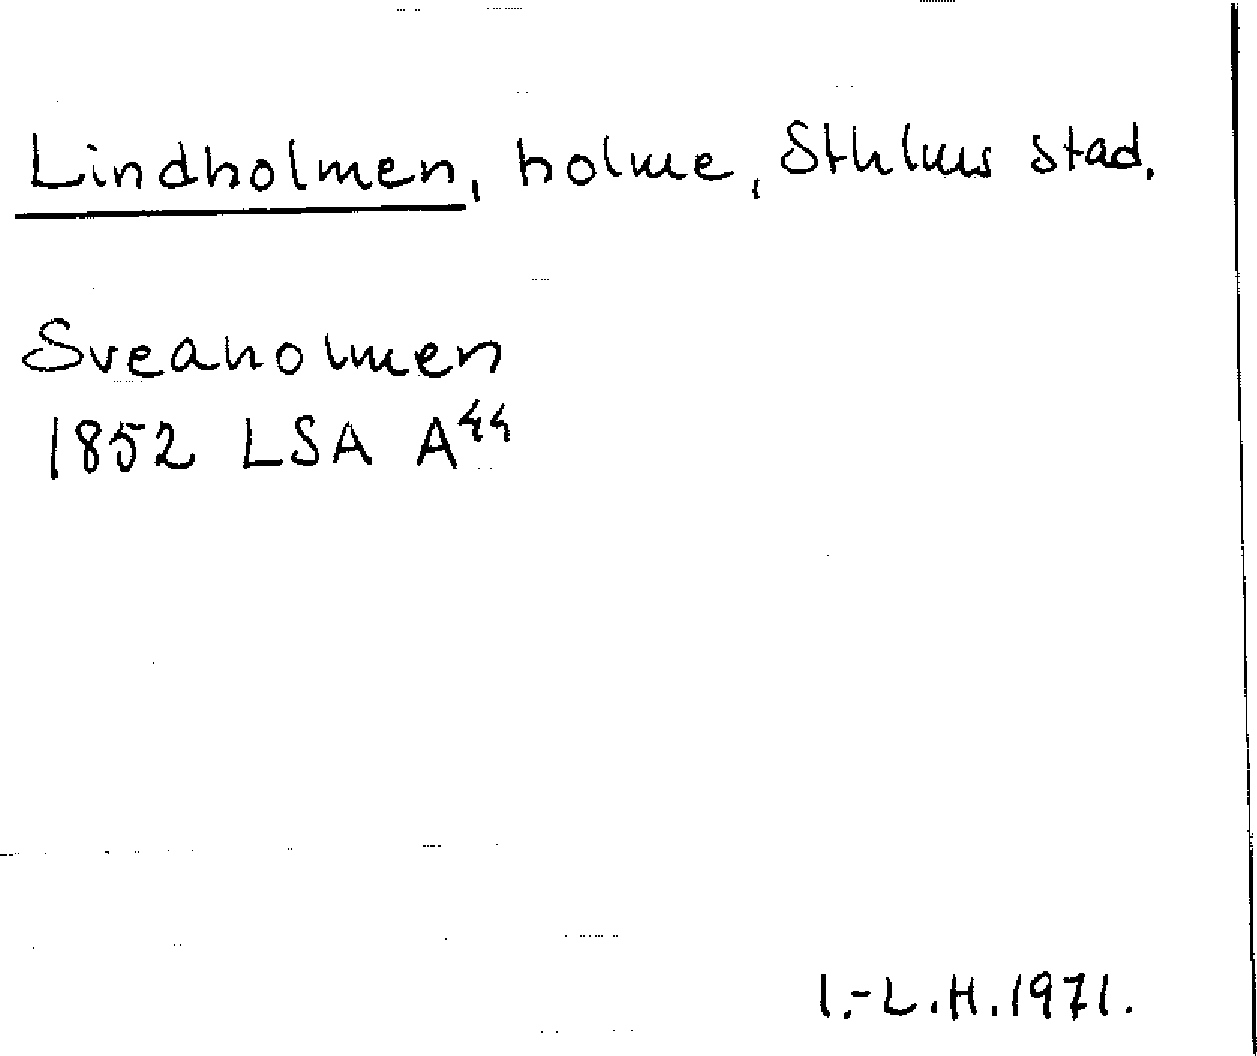 Lindholmen, holme, Sthlms stad.
Sveaholmen
1852 LSA A⁴⁴
I.-L.H.1971.